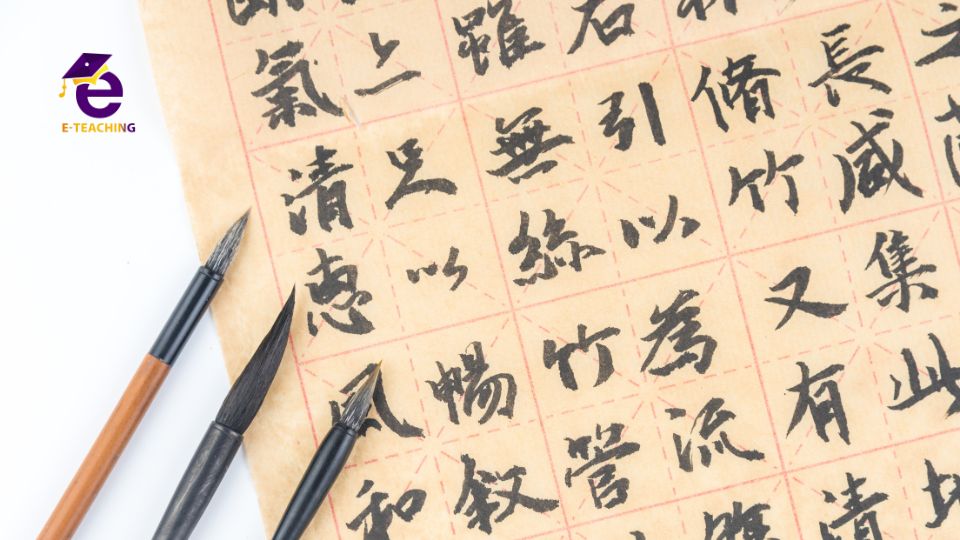 E-TEACHING
長咸集此地
脩竹又有清
右引以為流
雖無絲竹管
足以暢敘
氣清惠風和